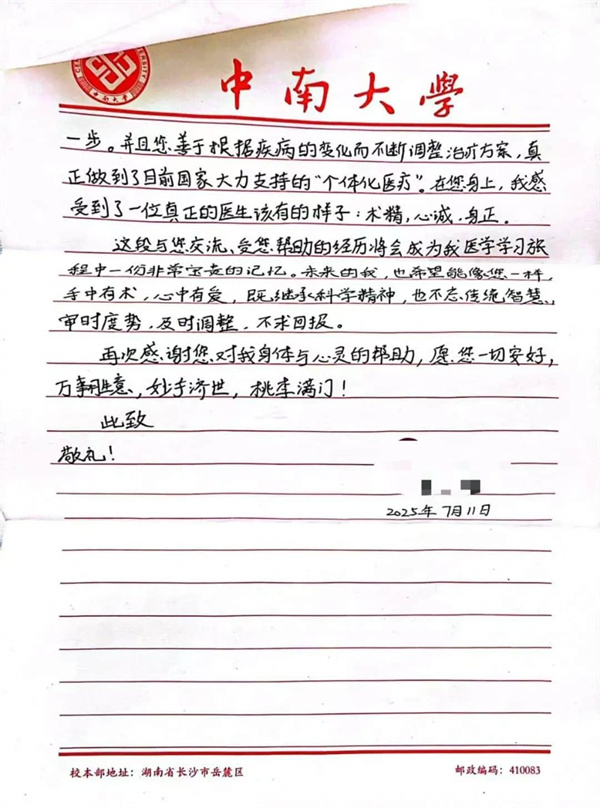 中南大学
一步。并且您善于根据疾病的变化而不断调整治疗方案，真
正做到了目前国家大力支持的“个体化医疗”。在您身上，我感
受到了一位真正的医生该有的样子：术精，心诚，身正。
这段与您交流、受您帮助的经历将会成为我医学学习旅
程中一份非常宝贵的记忆。未来的我，也希望能像您一样，
手中有术，心中有爱，既继承科学精神，也不忘传统智慧、
审时度势，及时调整，不求回报。
再次感谢您对我身体与心灵的帮助，愿您一切安好，
万事胜意，妙手济世，桃李满门！
此致
敬礼！
2025年7月11日
校本部地址：湖南省长沙市岳麓区
邮政编码：410083